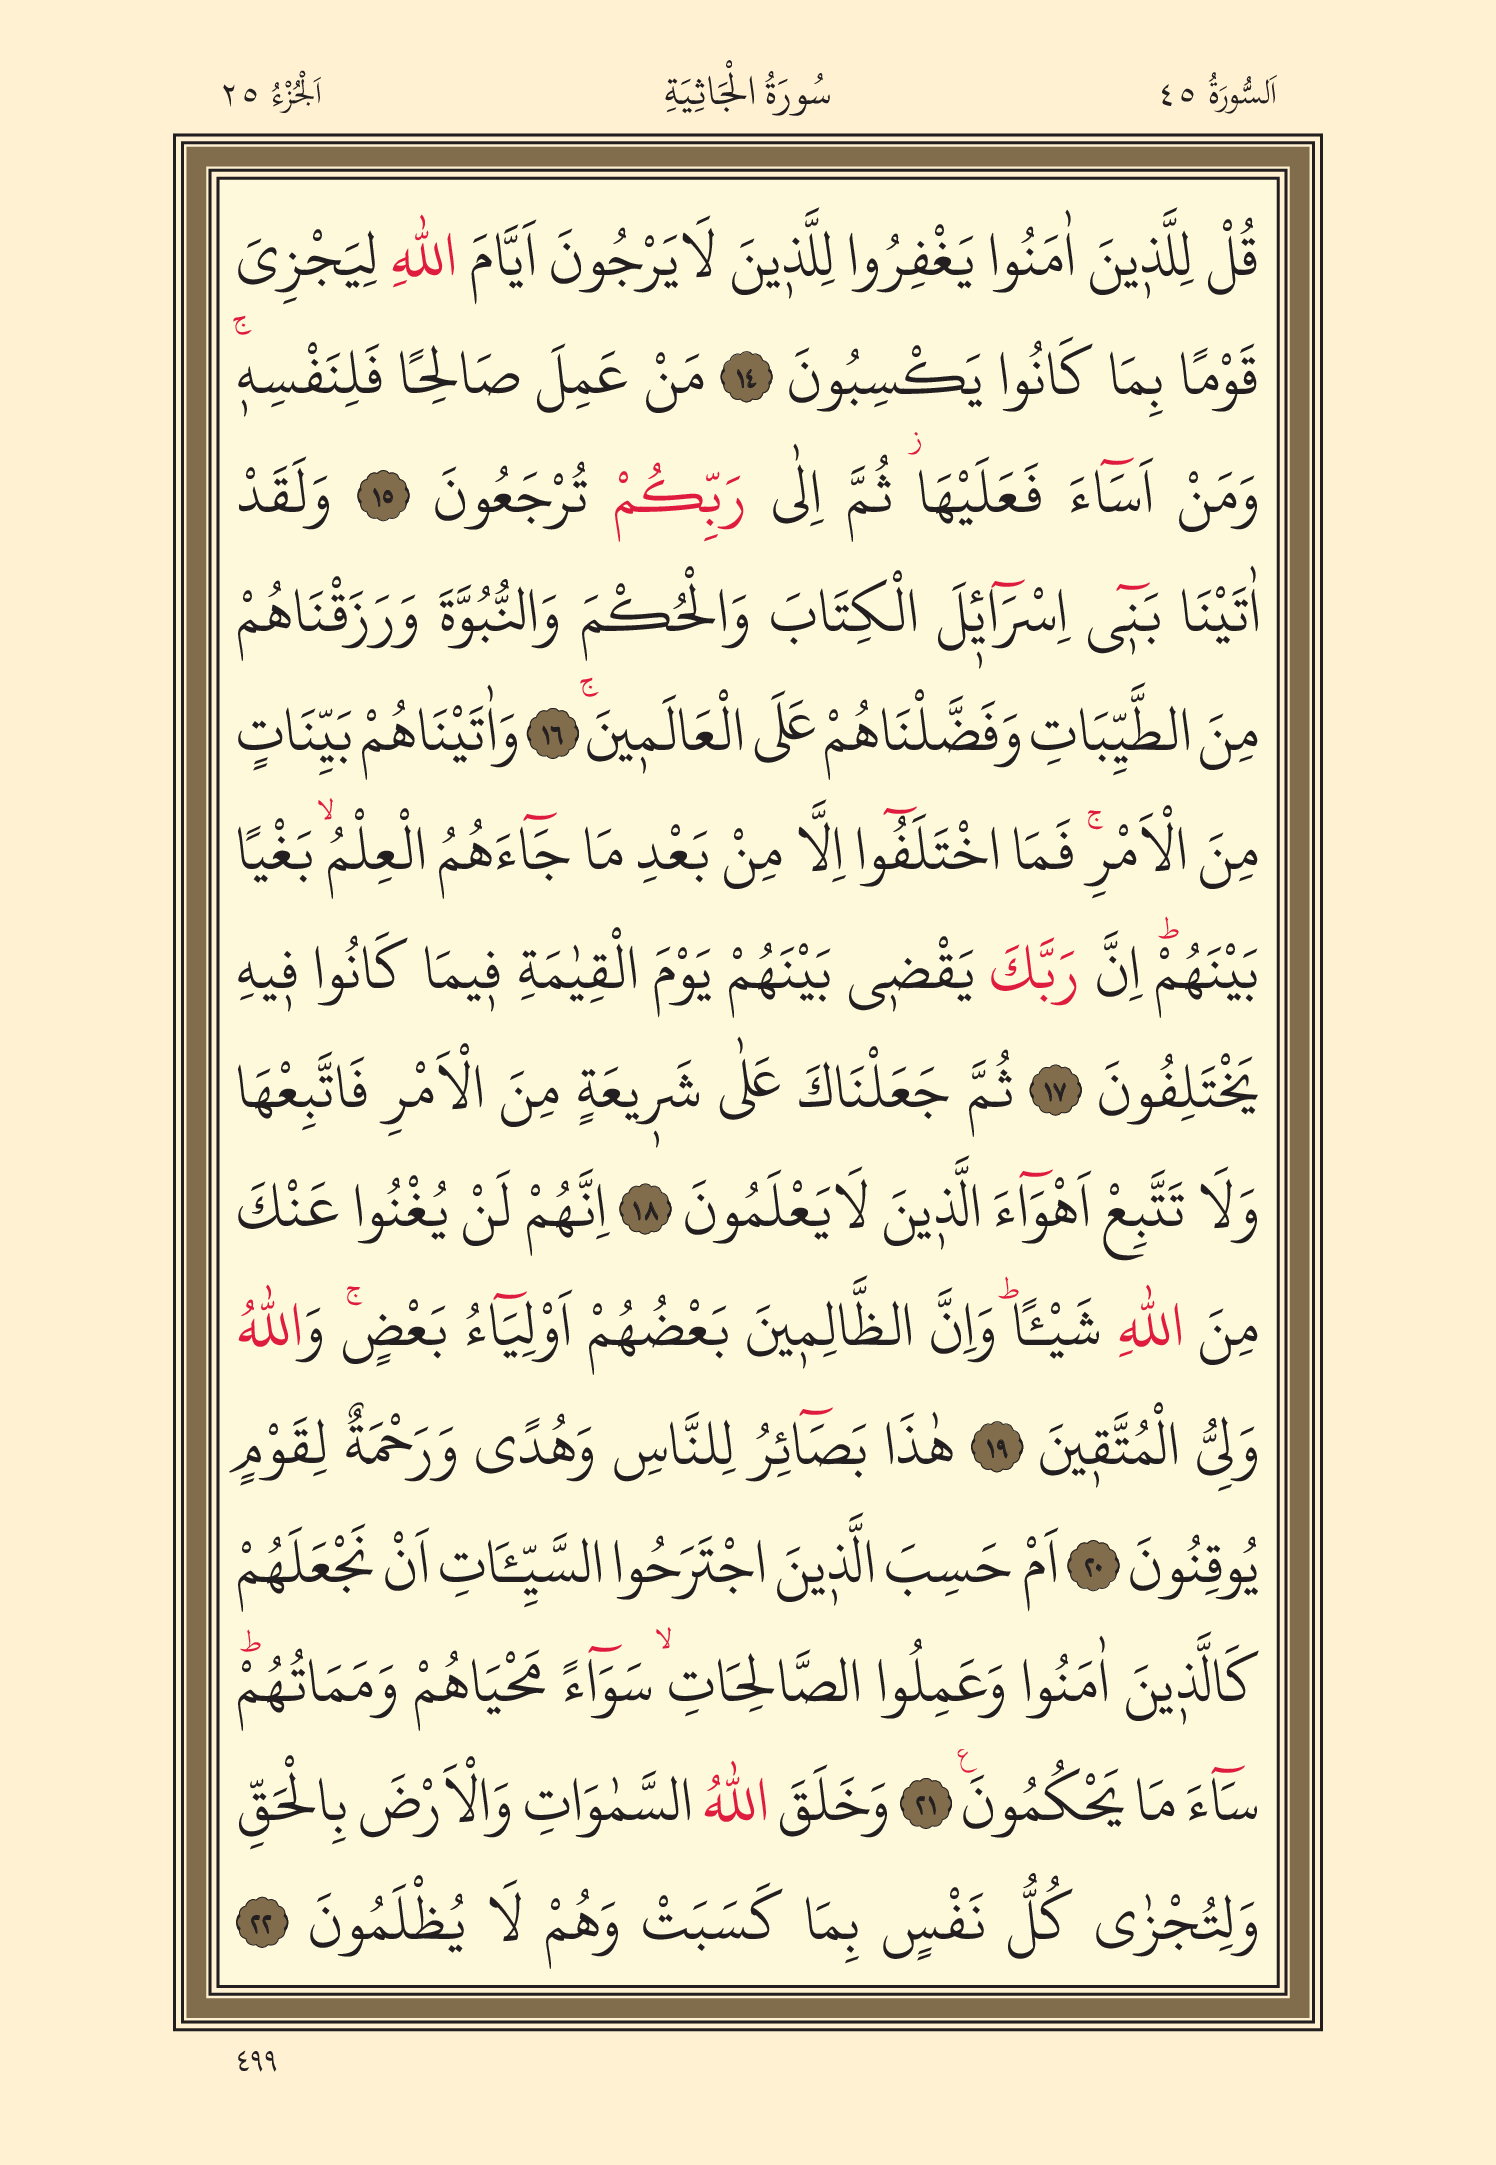 اَلسُّورَةُ ٤٥ سُورَةُ الْجَاثِيَةِ اَلْجُزْءُ ٢٥
قُلْ لِلَّذٖينَ اٰمَنُوا يَغْفِرُوا لِلَّذٖينَ لَا يَرْجُونَ اَيَّامَ اللّٰهِ لِيَجْزِىَ
قَوْمًا بِمَا كَانُوا يَكْسِبُونَ ١٤ مَنْ عَمِلَ صَالِحًا فَلِنَفْسِهٖۚ
وَمَنْ اَسَٓاءَ فَعَلَيْهَاؗ ثُمَّ اِلٰى رَبِّكُمْ تُرْجَعُونَ ١٥ وَلَقَدْ
اٰتَيْنَا بَنٖٓى اِسْرَٓائٖلَ الْكِتَابَ وَالْحُكْمَ وَالنُّبُوَّةَ وَرَزَقْنَاهُمْ
مِنَ الطَّيِّبَاتِ وَفَضَّلْنَاهُمْ عَلَى الْعَالَمٖينَۚ ١٦ وَاٰتَيْنَاهُمْ بَيِّنَاتٍ
مِنَ الْاَمْرِۚ فَمَا اخْتَلَفُٓوا اِلَّا مِنْ بَعْدِ مَا جَٓاءَهُمُ الْعِلْمُۙ بَغْيًا
بَيْنَهُمْؕ اِنَّ رَبَّكَ يَقْضٖى بَيْنَهُمْ يَوْمَ الْقِيٰمَةِ فٖيمَا كَانُوا فٖيهِ
يَخْتَلِفُونَ ١٧ ثُمَّ جَعَلْنَاكَ عَلٰى شَرٖيعَةٍ مِنَ الْاَمْرِ فَاتَّبِعْهَا
وَلَا تَتَّبِعْ اَهْوَٓاءَ الَّذٖينَ لَا يَعْلَمُونَ ١٨ اِنَّهُمْ لَنْ يُغْنُوا عَنْكَ
مِنَ اللّٰهِ شَيْـًٔاؕ وَاِنَّ الظَّالِمٖينَ بَعْضُهُمْ اَوْلِيَٓاءُ بَعْضٍۚ وَاللّٰهُ
وَلِىُّ الْمُتَّقٖينَ ١٩ هٰذَا بَصَٓائِرُ لِلنَّاسِ وَهُدًى وَرَحْمَةٌ لِقَوْمٍ
يُوقِنُونَ ٢٠ اَمْ حَسِبَ الَّذٖينَ اجْتَرَحُوا السَّيِّـَٔاتِ اَنْ نَجْعَلَهُمْ
كَالَّذٖينَ اٰمَنُوا وَعَمِلُوا الصَّالِحَاتِۙ سَوَٓاءً مَحْيَاهُمْ وَمَمَاتُهُمْؕ
سَٓاءَ مَا يَحْكُمُونَࣖ ٢١ وَخَلَقَ اللّٰهُ السَّمٰوَاتِ وَالْاَرْضَ بِالْحَقِّ
وَلِتُجْزٰى كُلُّ نَفْسٍ بِمَا كَسَبَتْ وَهُمْ لَا يُظْلَمُونَ ٢٢
٤٩٩